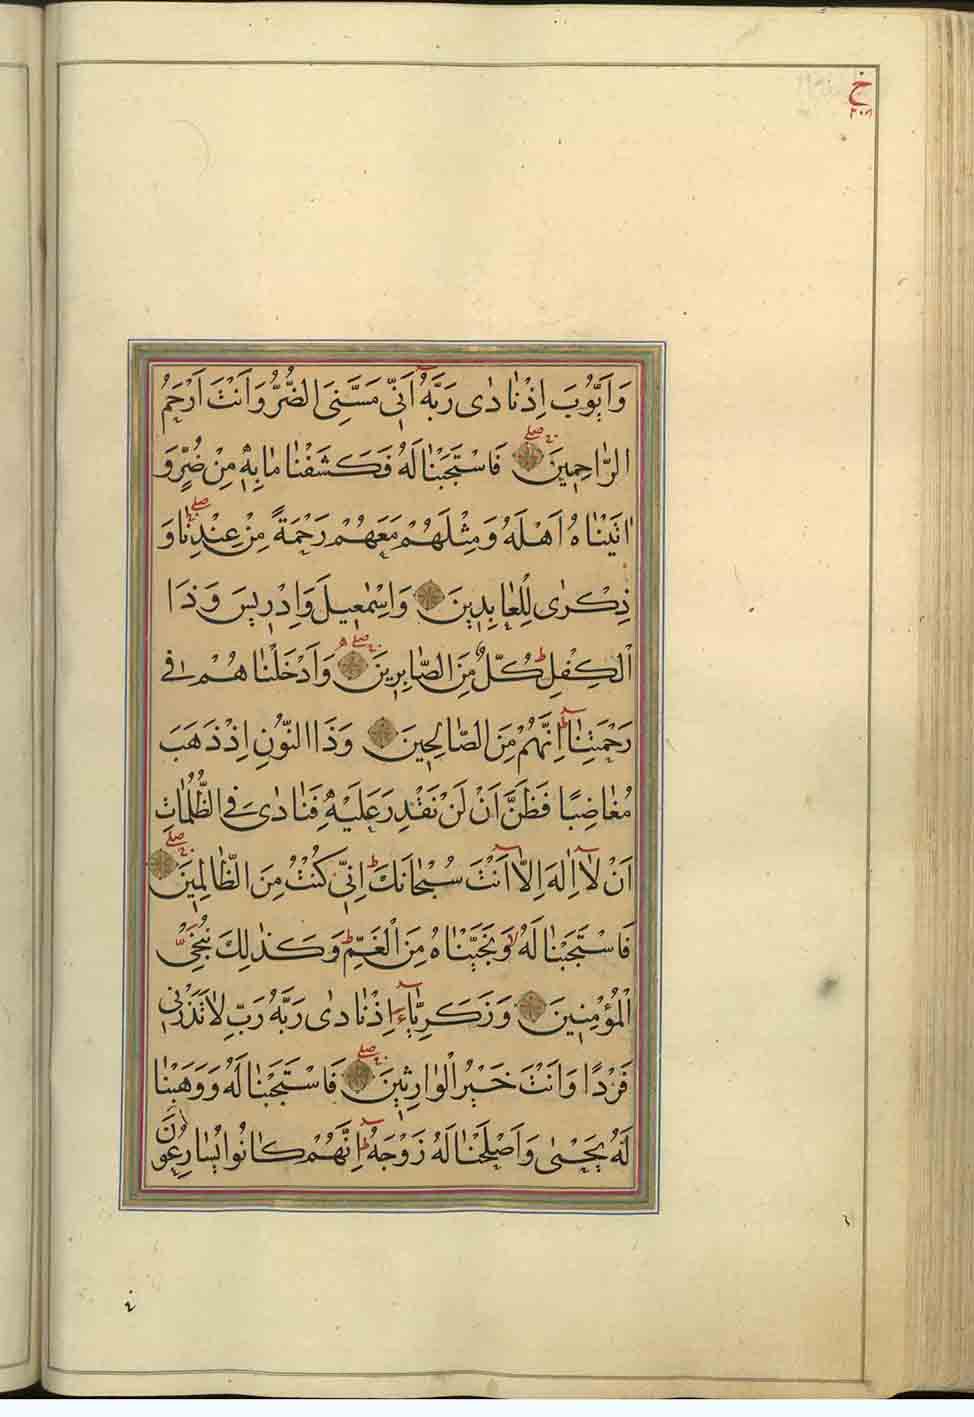 وَاَيُّوبَ اِذْ نَادٰى رَبَّهُ اَنّٖى مَسَّنِىَ الضُّرُّ وَاَنْتَ اَرْحَمُ
الرَّاحِمٖينَ فَاسْتَجَبْنَا لَهُ فَكَشَفْنَا مَا بِهٖ مِنْ ضُرٍّ وَ
اٰتَيْنَاهُ اَهْلَهُ وَمِثْلَهُمْ مَعَهُمْ رَحْمَةً مِنْ عِنْدِنَا وَ
ذِكْرٰى لِلْعَابِدٖينَ وَاِسْمٰعٖيلَ وَاِدْرٖيسَ وَذَا
الْكِفْلِ كُلٌّ مِنَ الصَّابِرٖينَ وَاَدْخَلْنَاهُمْ فٖى
رَحْمَتِنَا اِنَّهُمْ مِنَ الصَّالِحٖينَ وَذَا النُّونِ اِذْ ذَهَبَ
مُغَاضِبًا فَظَنَّ اَنْ لَنْ نَقْدِرَ عَلَيْهِ فَنَادٰى فِى الظُّلُمَاتِ
اَنْ لَا اِلٰهَ اِلَّا اَنْتَ سُبْحَانَكَ اِنّٖى كُنْتُ مِنَ الظَّالِمٖينَ
فَاسْتَجَبْنَا لَهُ وَنَجَّيْنَاهُ مِنَ الْغَمِّ وَكَذٰلِكَ نُنْجِى
الْمُؤْمِنٖينَ وَزَكَرِيَّاءَ اِذْ نَادٰى رَبَّهُ رَبِّ لَا تَذَرْنٖى
فَرْدًا وَاَنْتَ خَيْرُ الْوَارِثٖينَ فَاسْتَجَبْنَا لَهُ وَوَهَبْنَا
لَهُ يَحْيٰى وَاَصْلَحْنَا لَهُ زَوْجَهُ اِنَّهُمْ كَانُوا يُسَارِعُونَ